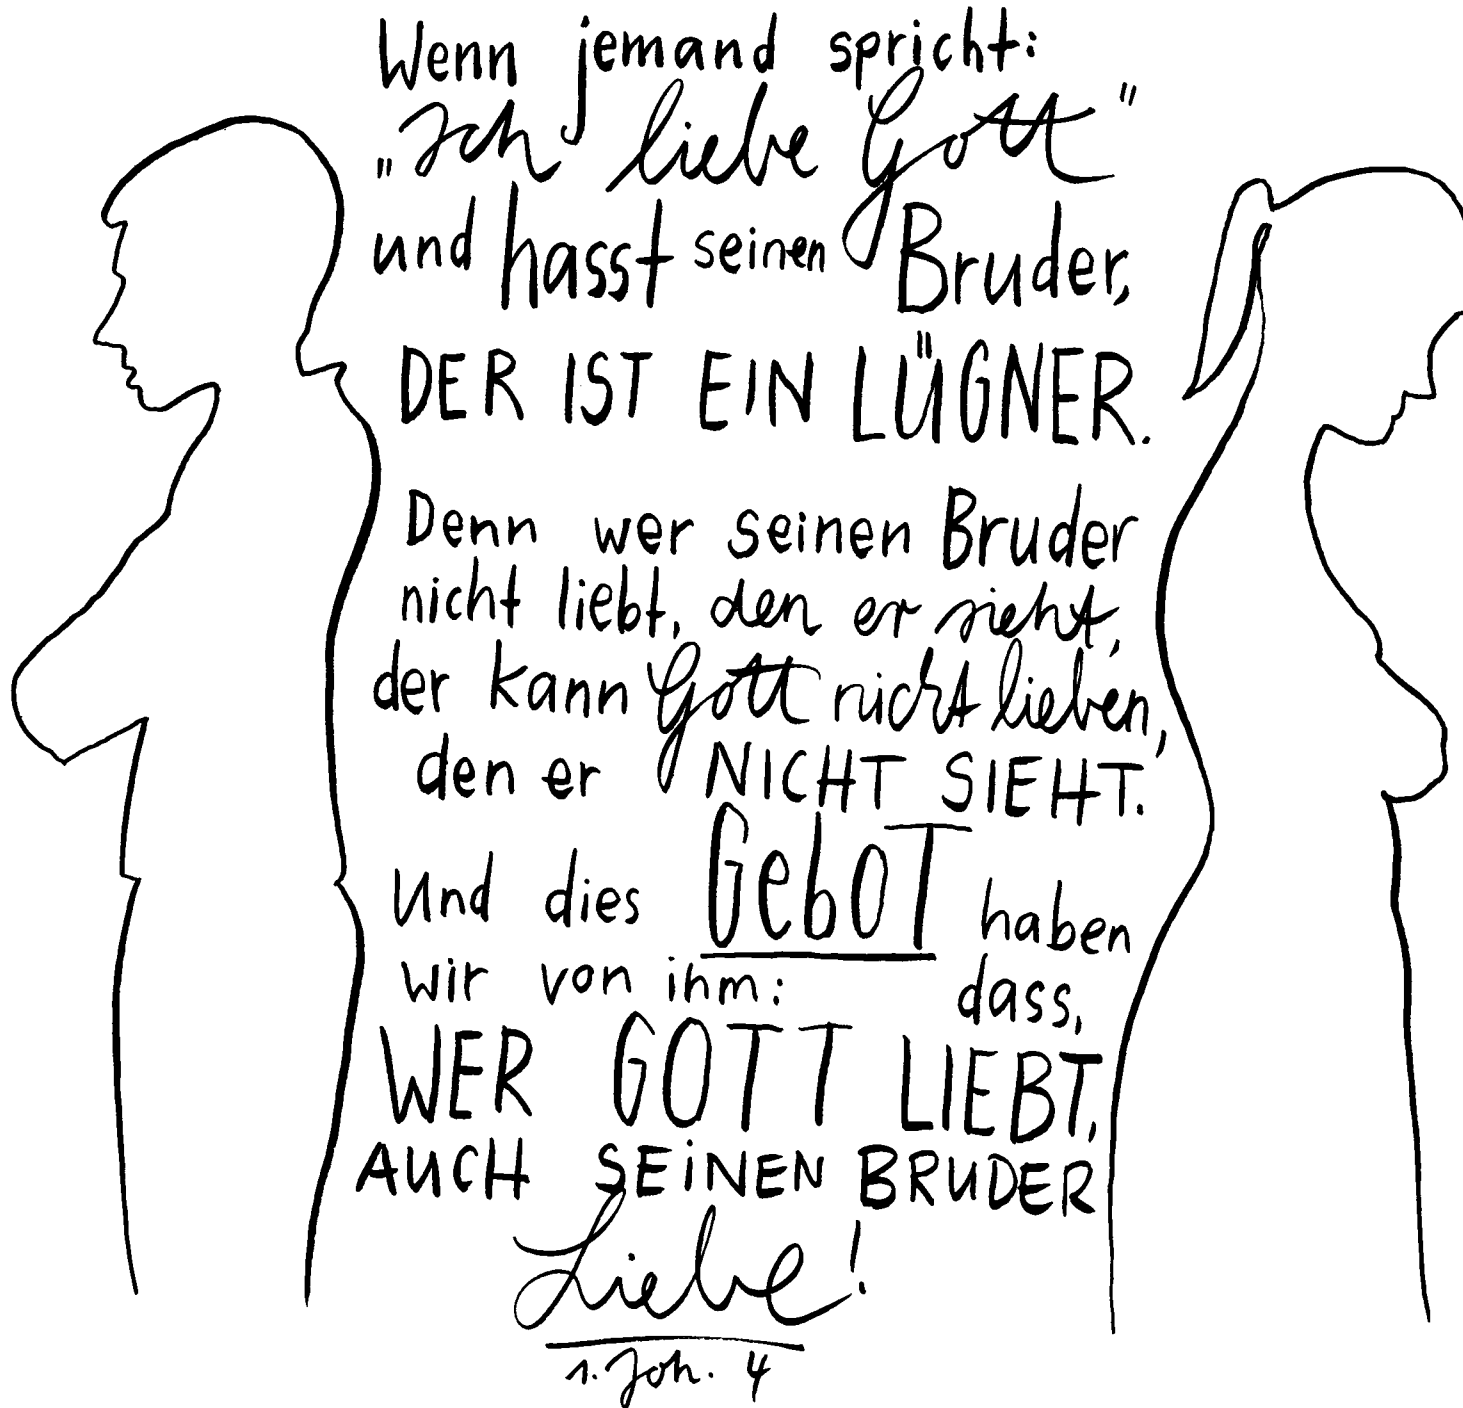 Wenn jemand spricht:
„Ich liebe Gott"
und hasst seinen Bruder,
DER IST EIN LÜGNER.
Denn wer seinen Bruder
nicht liebt, den er sieht,
der kann Gott nicht lieben,
den er NICHT SIEHT.
Und dies GeboT haben
wir von ihm: dass,
WER GOTT LIEBT,
AUCH SEiNEN BRUDER
Liebe!
1. Joh. 4